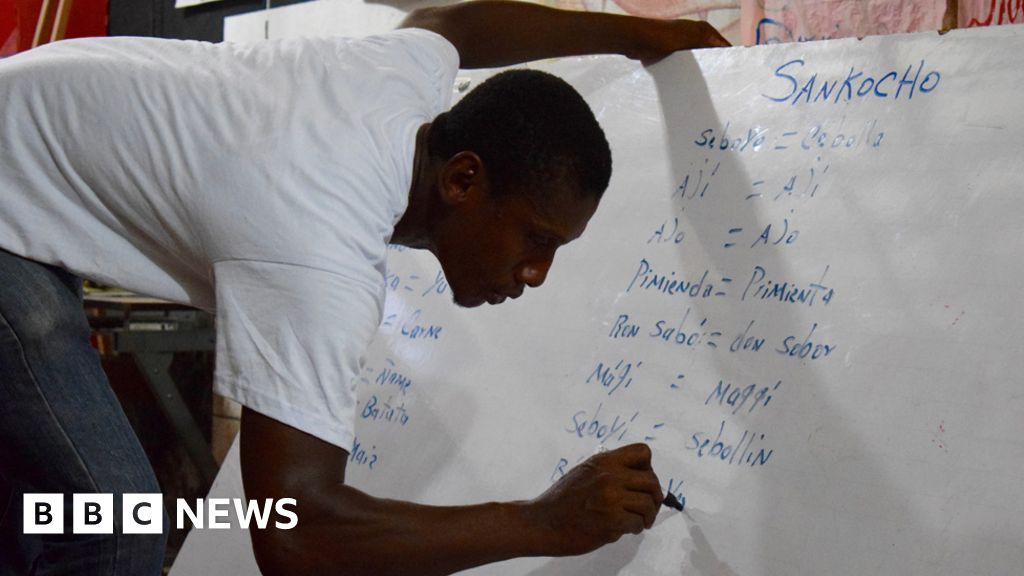 SANKOCHO
seboyo = Cebolla
AJÍ = AJÍ
AJo = AJo
Pimienda = Piimienta
Ron sabó = don sabor
Mágí = Maggi
Seboyí = sebollín
= Carne
= Ñame
Batata
Maiz
BBC NEWS